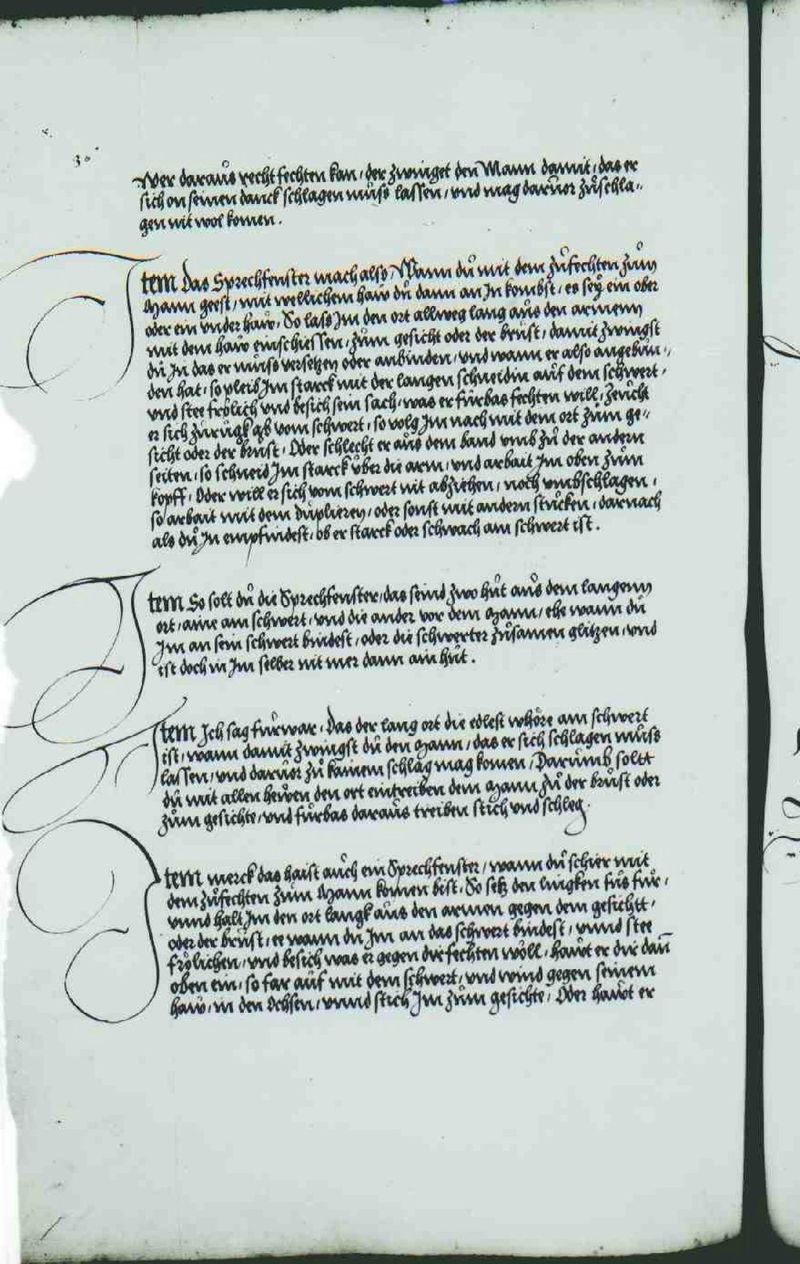 30
Wer daraŭs recht fechten kan, der zwinget den Mann damit, das er
sich on seinen danck schlagen mŭss lassen, vnd mag darŭor zŭ schla=
gen nit wol komen.
Item Das Sprechfenster mach also, Wann dŭ mit dem zŭfechten zŭm
Mann geest, mit wellichem haw dŭ dann an In kombst, es seÿ ein ober
oder ein vnder haw, So lass Im den ort allweg lang aŭs den armenn
mit dem haw einschiessen, zŭm gesicht oder der brŭst, damit zwingst
dŭ In das er mŭss versetzen oder anbinden, vnd wann er also angebŭn=
den hat, so pleib Im starck mit der langen schneidin aŭf dem schwert,
vnd stee frölich vnd besich sein sach, was er fŭrbas fechten will, Zeŭcht
er sich zŭrŭgk ab vom schwert, so volg Im nach mit dem ort zŭm ge=
sicht oder der brŭst, Oder schlecht er aŭs dem band vmb zŭ der andern
seiten, so schneid Im starck ŭber die arm, vnd arbait Im oben zŭm
kopff, Oder will er sich vom schwert nit abziehen, noch vmbschlagen,
so arbait mit dem dŭplieren, oder sonst mit andern stŭcken, darnach
als dŭ In empfindest, ob er starck oder schwach am schwert ist.
Item So solt dŭ die Sprechfenster, das seind zwo hŭt aŭs dem langenn
ort, aine am schwert, vnd die ander vor dem Mann, ehe wann dŭ
Im an sein schwert bindest, oder die schwerter zŭsamen glitzen, vnd
ist doch in Im selber nit mer dann ain hŭt.
Item Ich sag fŭrwar, Das der lang ort die edlest whöre am schwert
ist, wann damit zwingst dŭ den Mann, das er sich schlagen mŭss
lassen, vnd darŭor zŭ kainem schlag mag komen, Darŭmb soltt
dŭ mit allen hewen den ort eintreiben dem Mann zŭ der brŭst oder
zŭm gesichte, vnd fŭrbas daraŭs treiben stich vnd schleg.
Item merck das haist aŭch ein Sprechfenster, wann dŭ schier mit
dem zŭfechten zŭm Mann komen bist, So setz den lingken fŭs fŭr,
vnnd halt Im den ort langk aŭs den armen gegen dem gesichtt,
oder der brŭst, ee wann dŭ Im an das schwert bindest, vnnd stee
frölichen, vnd besich was er gegen dir fechten wöll, haŭt er dir dan̄
oben ein, so far aŭf mit dem schwert, vnd wind gegen seinem
haw, in den Ochsen, vnnd stich Im zŭm gesichte, Oder haŭt er